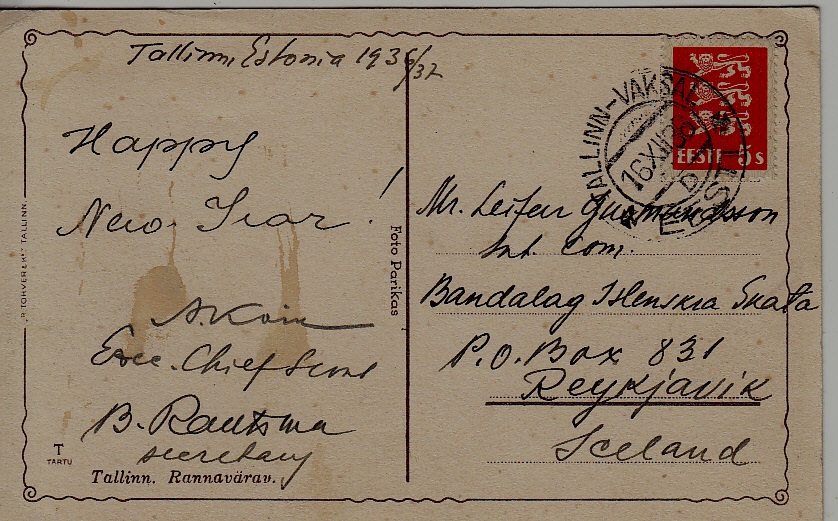 Tallinn, Estonia 1936/37
Happy
New Year!
A. Koin
Exec. Chief Scout
B. Rautsma
secretary
Tallinn. Rannavärav.
T
TARTU
TALLINN.
Foto Parikas
TALLINN-VAKSAL
16 XII 36
EESTI
EESTI 5 s
Mr. Leifur Gudmundsson
Int. Com.
Bandalag Islenskra Skata
P.O. Box 831
Reykjavik
Iceland